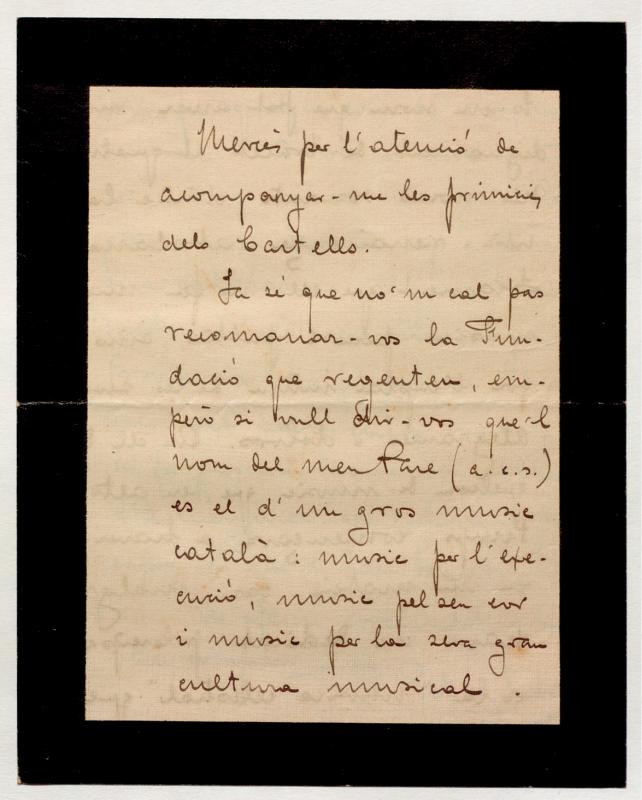 Mercès per l'atenció de
acompanyar-me les primicies
dels Cartells.
Ja sé que no'm cal pas
recomanar-vos la Fun-
dació que regenteu, em-
però si vull dir-vos que'l
nom del meu Pare (a.c.s.)
es el d'un gros music
català: music per l'exe-
cució, music pel seu cor
i music per la seva gran
cultura musical.